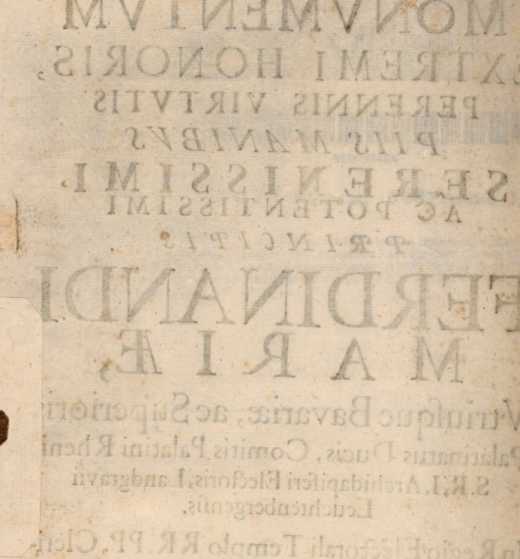 MONVMENTVM
EXTREMI HONORIS,
PERENNIS VIRTVTIS
PIIS MANIBVS
SERENISSIMI,
AC POTENTISSIMI
PRINCIPIS
FERDINANDI
MARIÆ,
Vtriusque Bavariæ, ac Superioris
Palatinatus Ducis, Comitis Palatini Rheni
S. R. I. Archidapiferi Electoris, Landgravii
Leuchtenbergensis,
Electorali Templo RR. PP. Cleri-